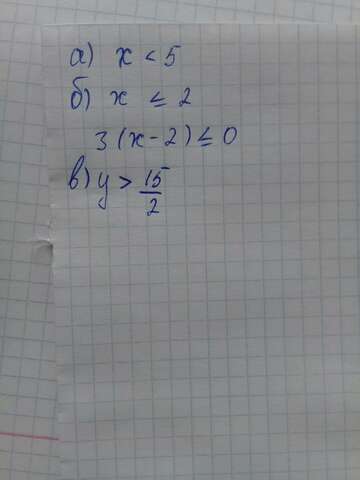 а) x < 5
б) x ≤ 2
3(x-2) ≤ 0
в) y > 15/2